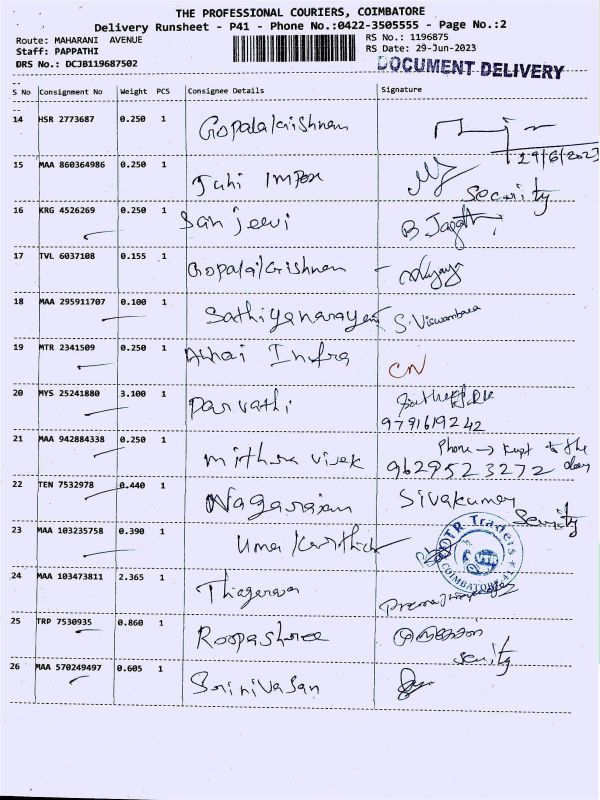 THE PROFESSIONAL COURIERS, COIMBATORE
Delivery Runsheet - P41 - Phone No.:0422-3505555 - Page No.:2
Route: MAHARANI AVENUE
Staff: PAPPATHI
DRS No.: DCJB119687502
RS No.: 1196875
RS Date: 29-Jun-2023
DOCUMENT DELIVERY
S No Consignment No Weight PCS Consignee Details Signature
14 HSR 2773687 0.250 1 Gopalakrishnan
29/6/2023
15 MAA 860364986 0.250 1 Juhi Impex
Security
16 KRG 4526269 0.250 1 Sanjeevi B Jagath
17 TVL 6037108 0.155 1 Gopalakrishnan Vijaya
18 MAA 295911707 0.100 1 Sathiyanarayan S. Viswambara
19 MTR 2341509 0.250 1 Abhai Infra CN
20 MYS 25241880 3.100 1 Parvathi
9791619242
21 MAA 942884338 0.250 1 mithra vivek Phone → kept to the door
9629523272
22 TEN 7532978 0.440 1 Nagarajan Sivakumar
Security
23 MAA 103235758 0.390 1 Uma Karthick
VTR Traders
VTR
COIMBATORE-41
24 MAA 103473811 2.365 1 Thiagaraja
25 TRP 7530935 0.860 1 Roopashree
Security
26 MAA 570249497 0.605 1 Srinivasan